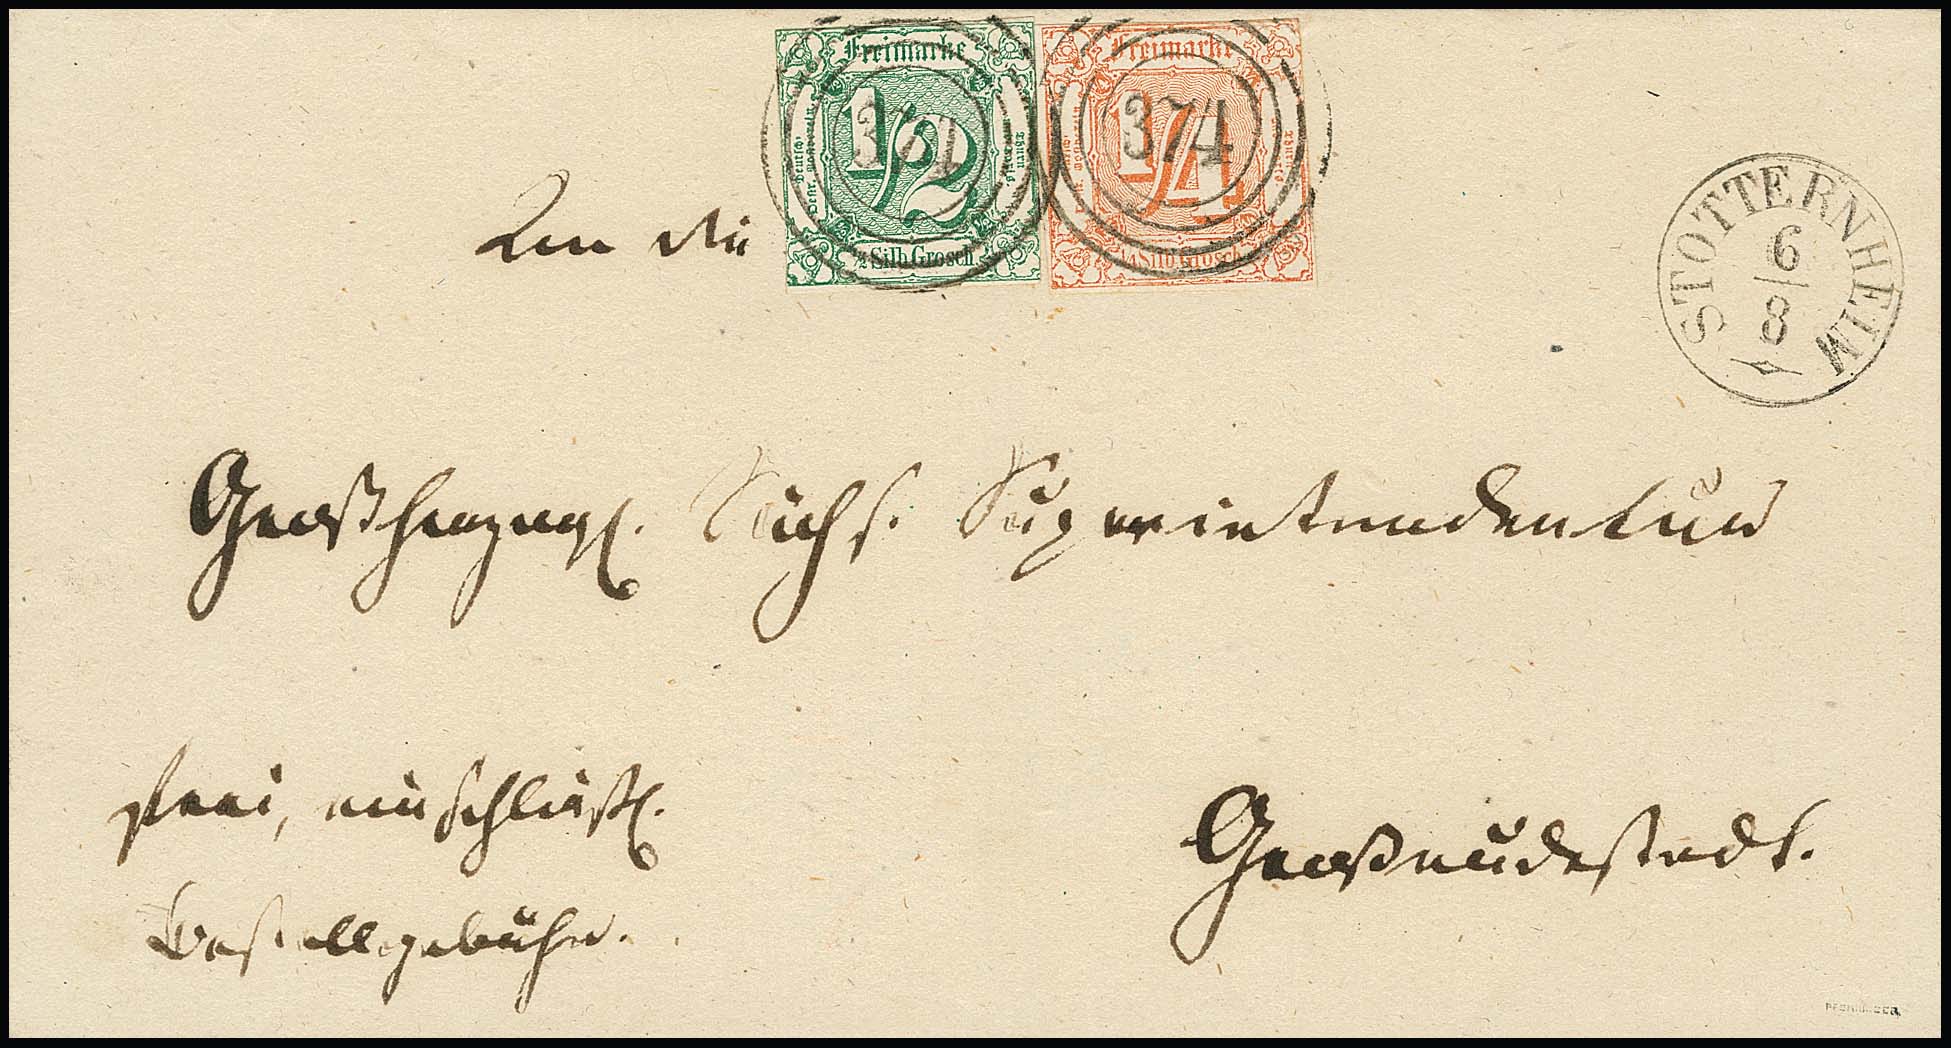 Freimarke
1/2
371
1/2 Silb. Grosch.
Freimarke
1/4
374
1/4 Silb. Grosch.
STOTTERNHEIM
6/8
An die
Großherzogl. Sächs. Superintendentur
frei, einschließl.
Bestellgebühr.
Großrudestedt.